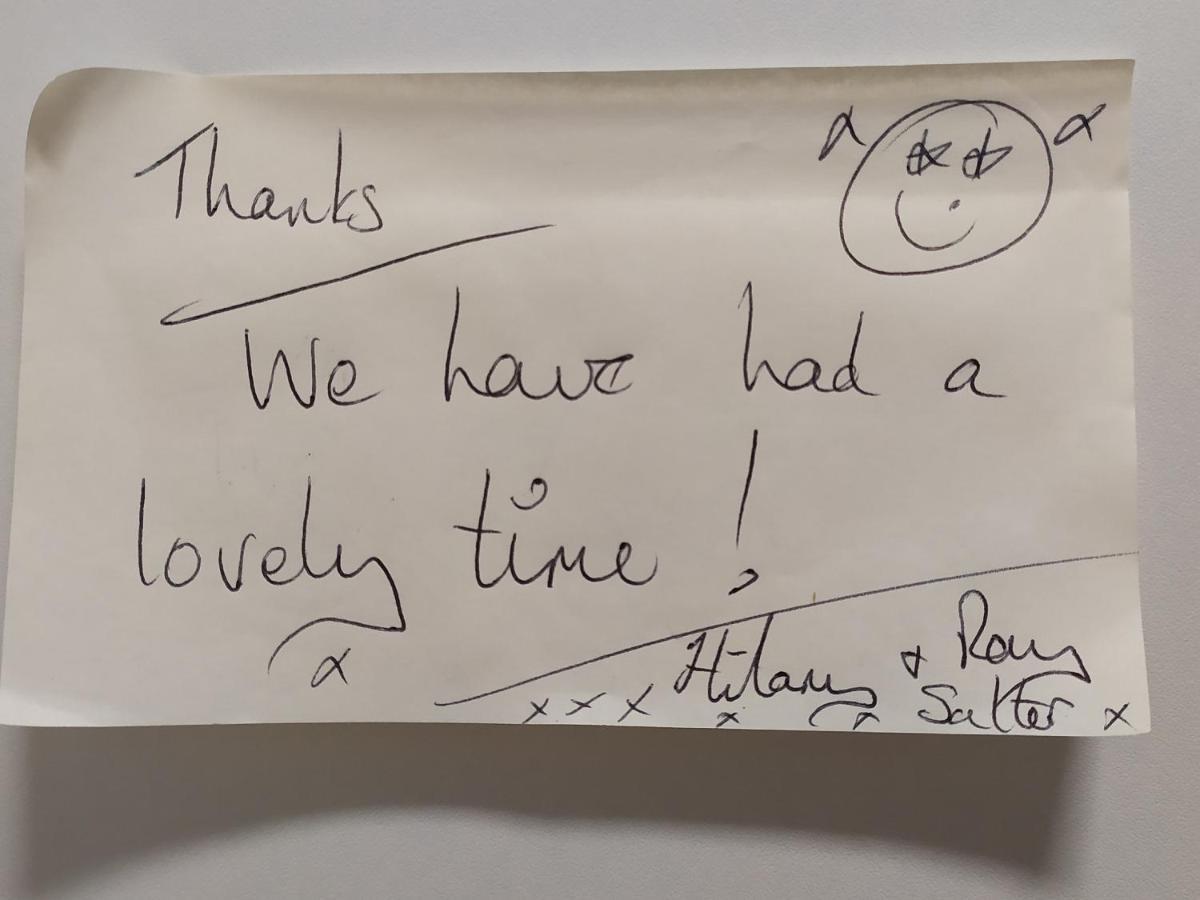 Thanks
We have had a
lovely time!
x
Hilary + Rony
x x x x x Salter x